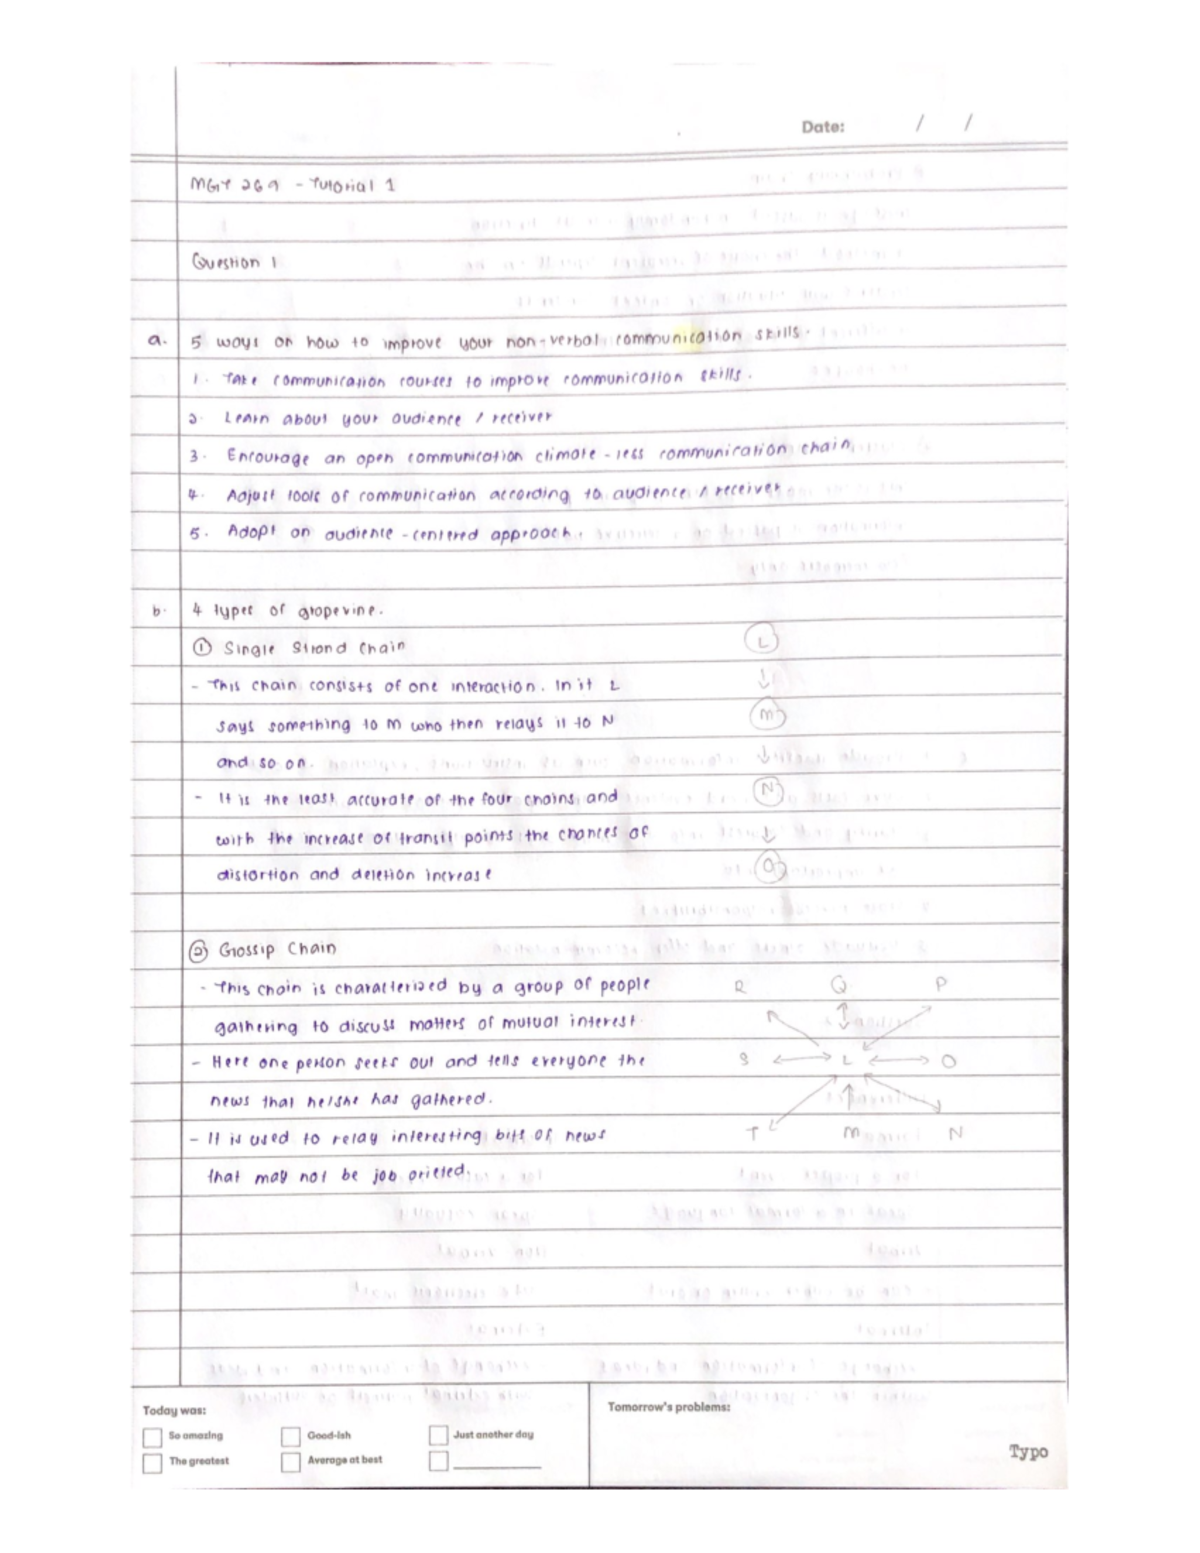 Date: / /
MGT 269 - Tutorial 1
Question 1
a. 5 ways on how to improve your non-verbal communication skills.
1. Take communication courses to improve communication skills.
2. Learn about your audience / receiver
3. Encourage an open communication climate - less communication chain.
4. Adjust tools of communication according to audience / receiver
5. Adopt an audience - centered approach.
b. 4 types of grapevine.
① Single Strand Chain
L
- This chain consists of one interaction. In it L
says something to M who then relays it to N
M
and so on.
- It is the least accurate of the four chains and
N
with the increase of transit points the chances of
distortion and deletion increase
O
② Gossip Chain
- This chain is characterized by a group of people
R Q P
gathering to discuss matters of mutual interest.
- Here one person seeks out and tells everyone the
S L O
news that he/she has gathered.
- It is used to relay interesting bits of news
T M N
that may not be job orieted.
Today was:
So amazing
Good-ish
Just another day
The greatest
Average at best
Tomorrow's problems:
Typo